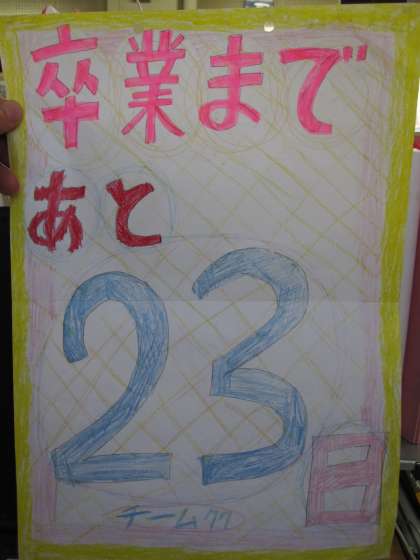 卒業まで
あと
23日
チーム77